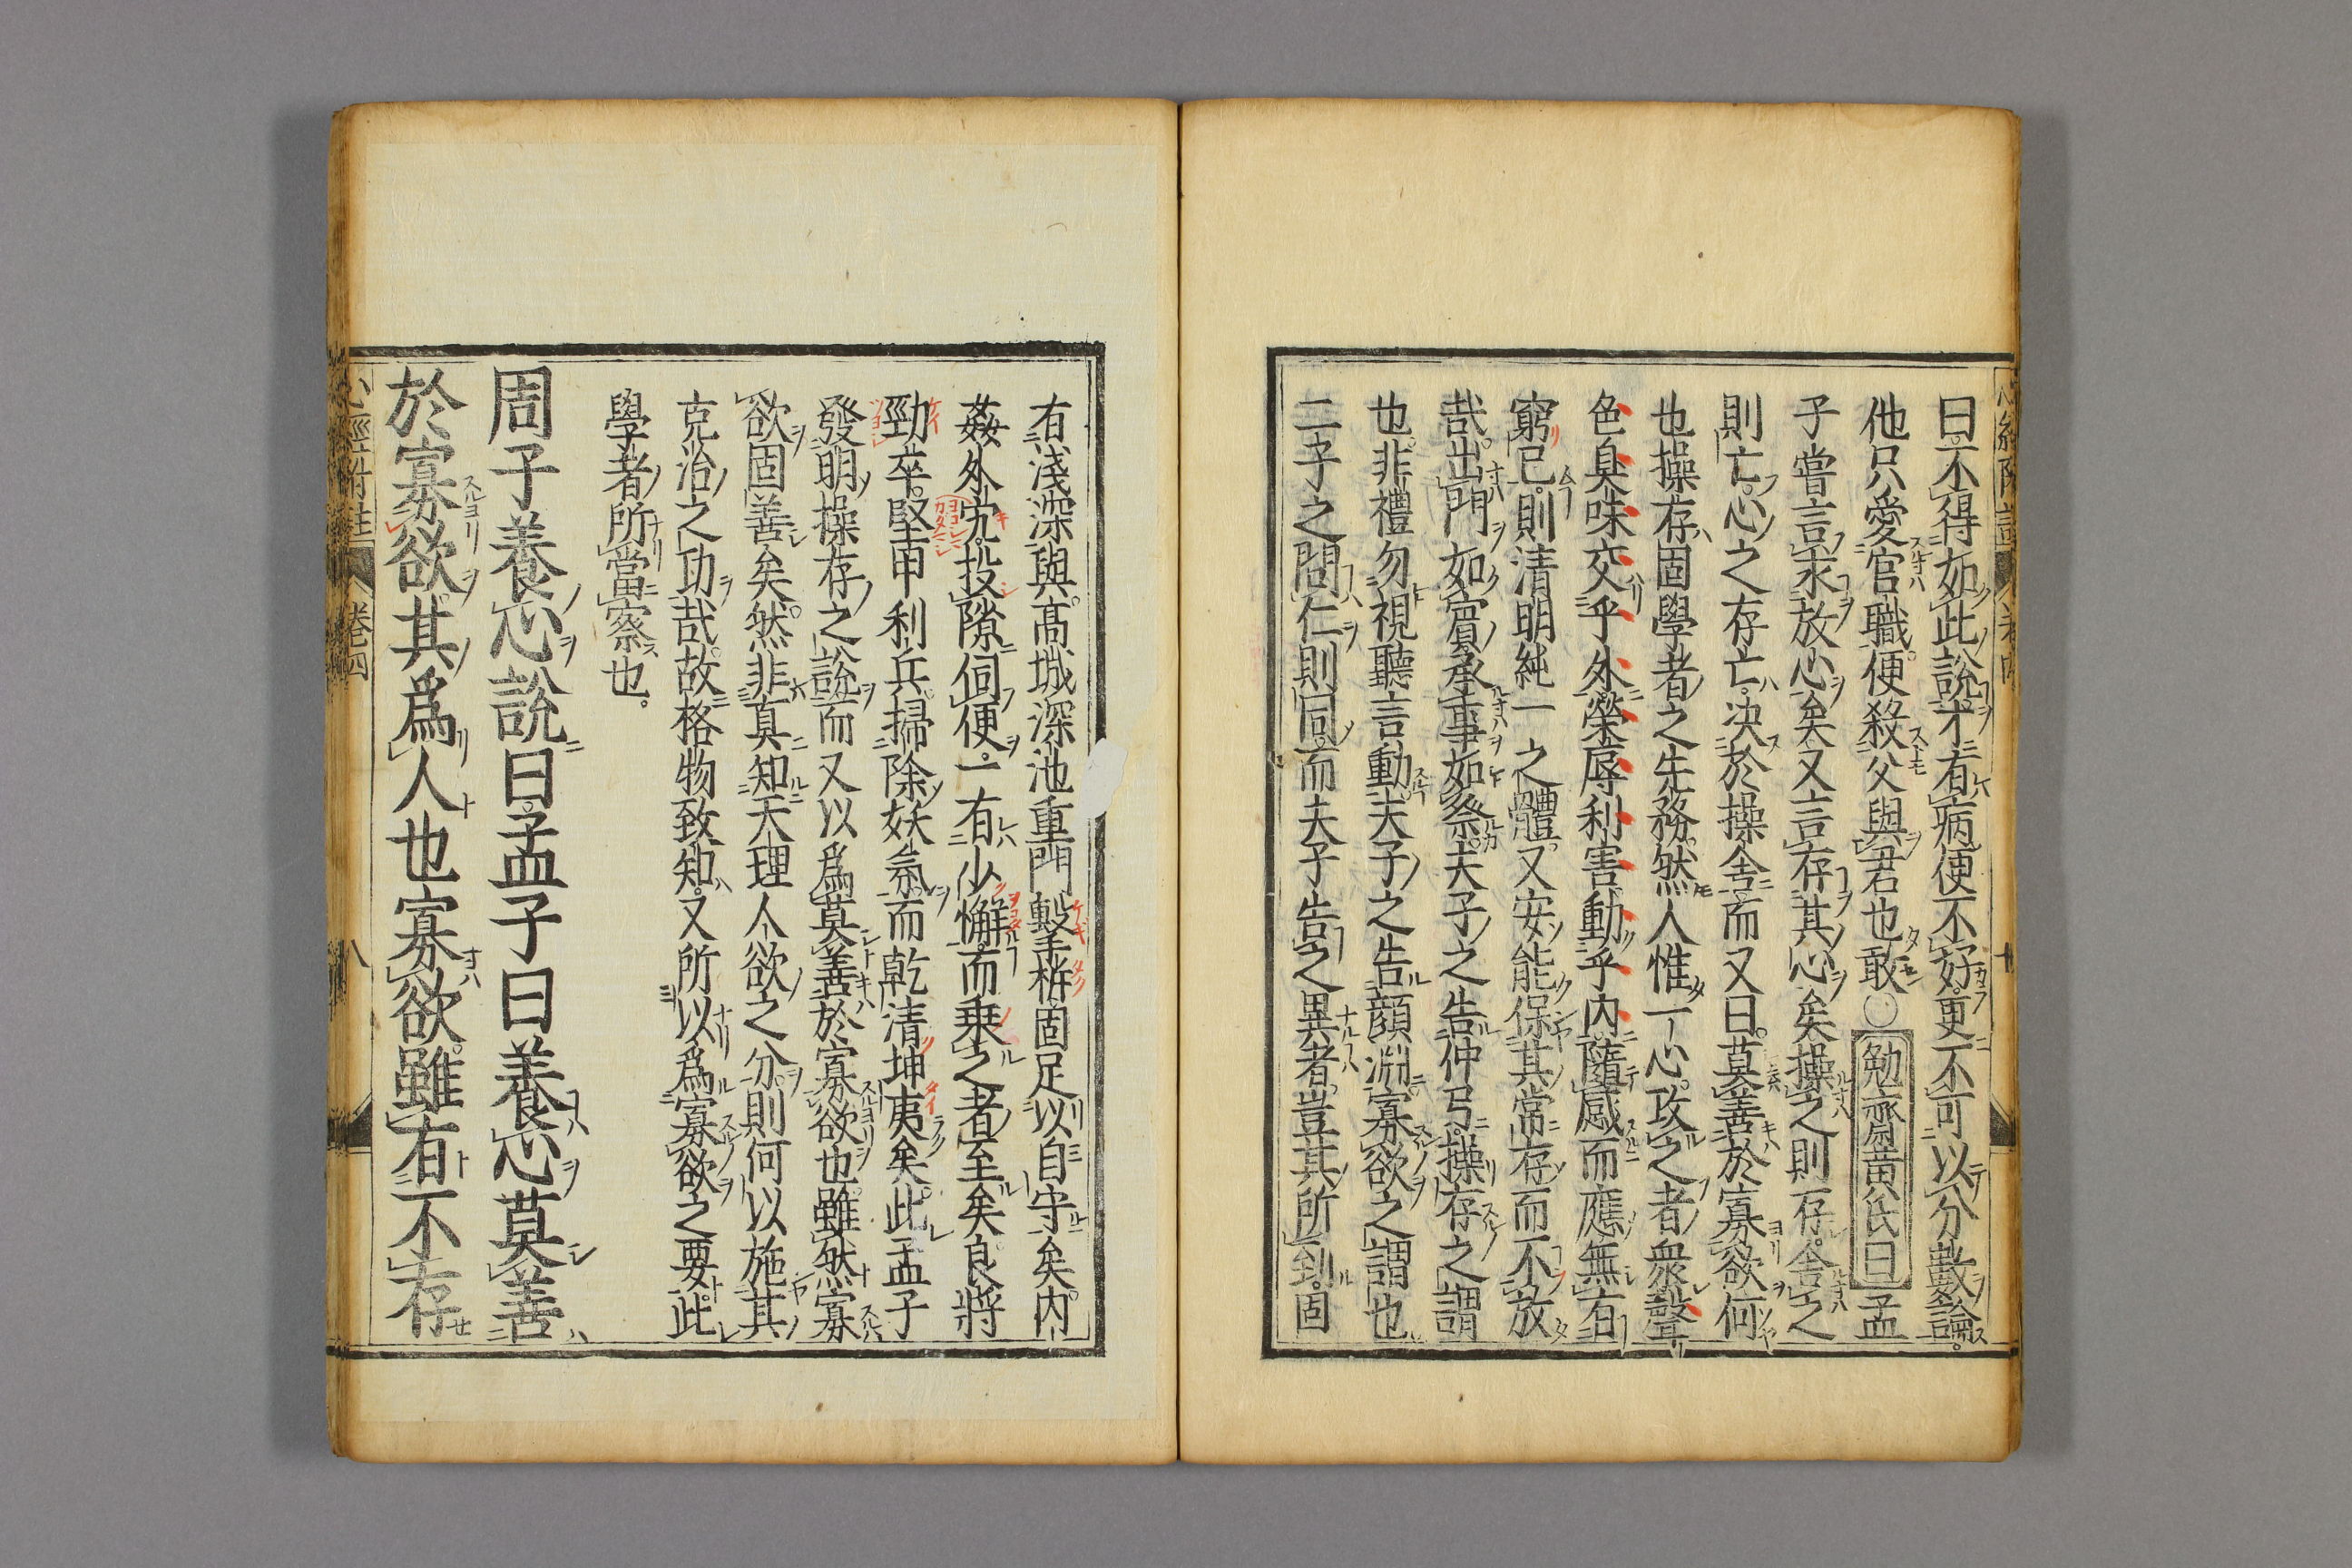 曰不得如此說才有病便不好更不可以分數論
他只愛官職便殺父與君也敢〇勉齋黃氏曰孟
子嘗言求放心矣又言存其心矣操之則存舍之
則亡心之存亡決於操舍而又曰莫善於寡欲何
也操存固學者之先務然人惟一心攻之者衆聲
色臭味交乎外榮辱利害動乎內隨感而應無有
窮已則清明純一之體又安能保其常存而不放
哉出門如賓承事如祭夫子之告仲弓操存之謂
也非禮勿視聽言動夫子之告顔淵寡欲之謂也
二子之問仁則同而夫子告之異者豈其所到固
有淺深與高城深池重門擊柝固足以自守矣內
姦外宄投隙伺便一有少懈而乗之者至矣良將
勁卒堅甲利兵掃除妖氛而乾清坤夷矣此孟子
發明操存之說而又以爲莫善於寡欲也雖然寡
欲固善矣然非真知天理人欲之分則何以施其
克治之功哉故格物致知又所以爲寡欲之要此
學者所當察也
周子養心說曰孟子曰養心莫善
於寡欲其爲人也寡欲雖有不存
心經附註 卷四 八